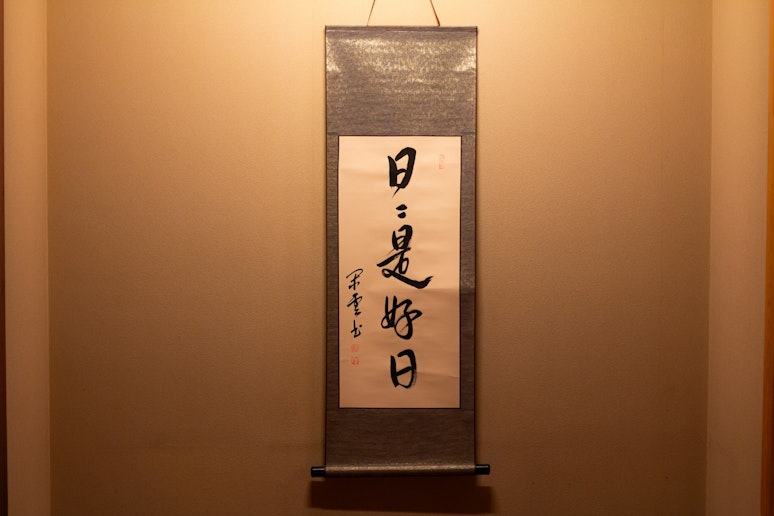 日〻是好日
閑雲書